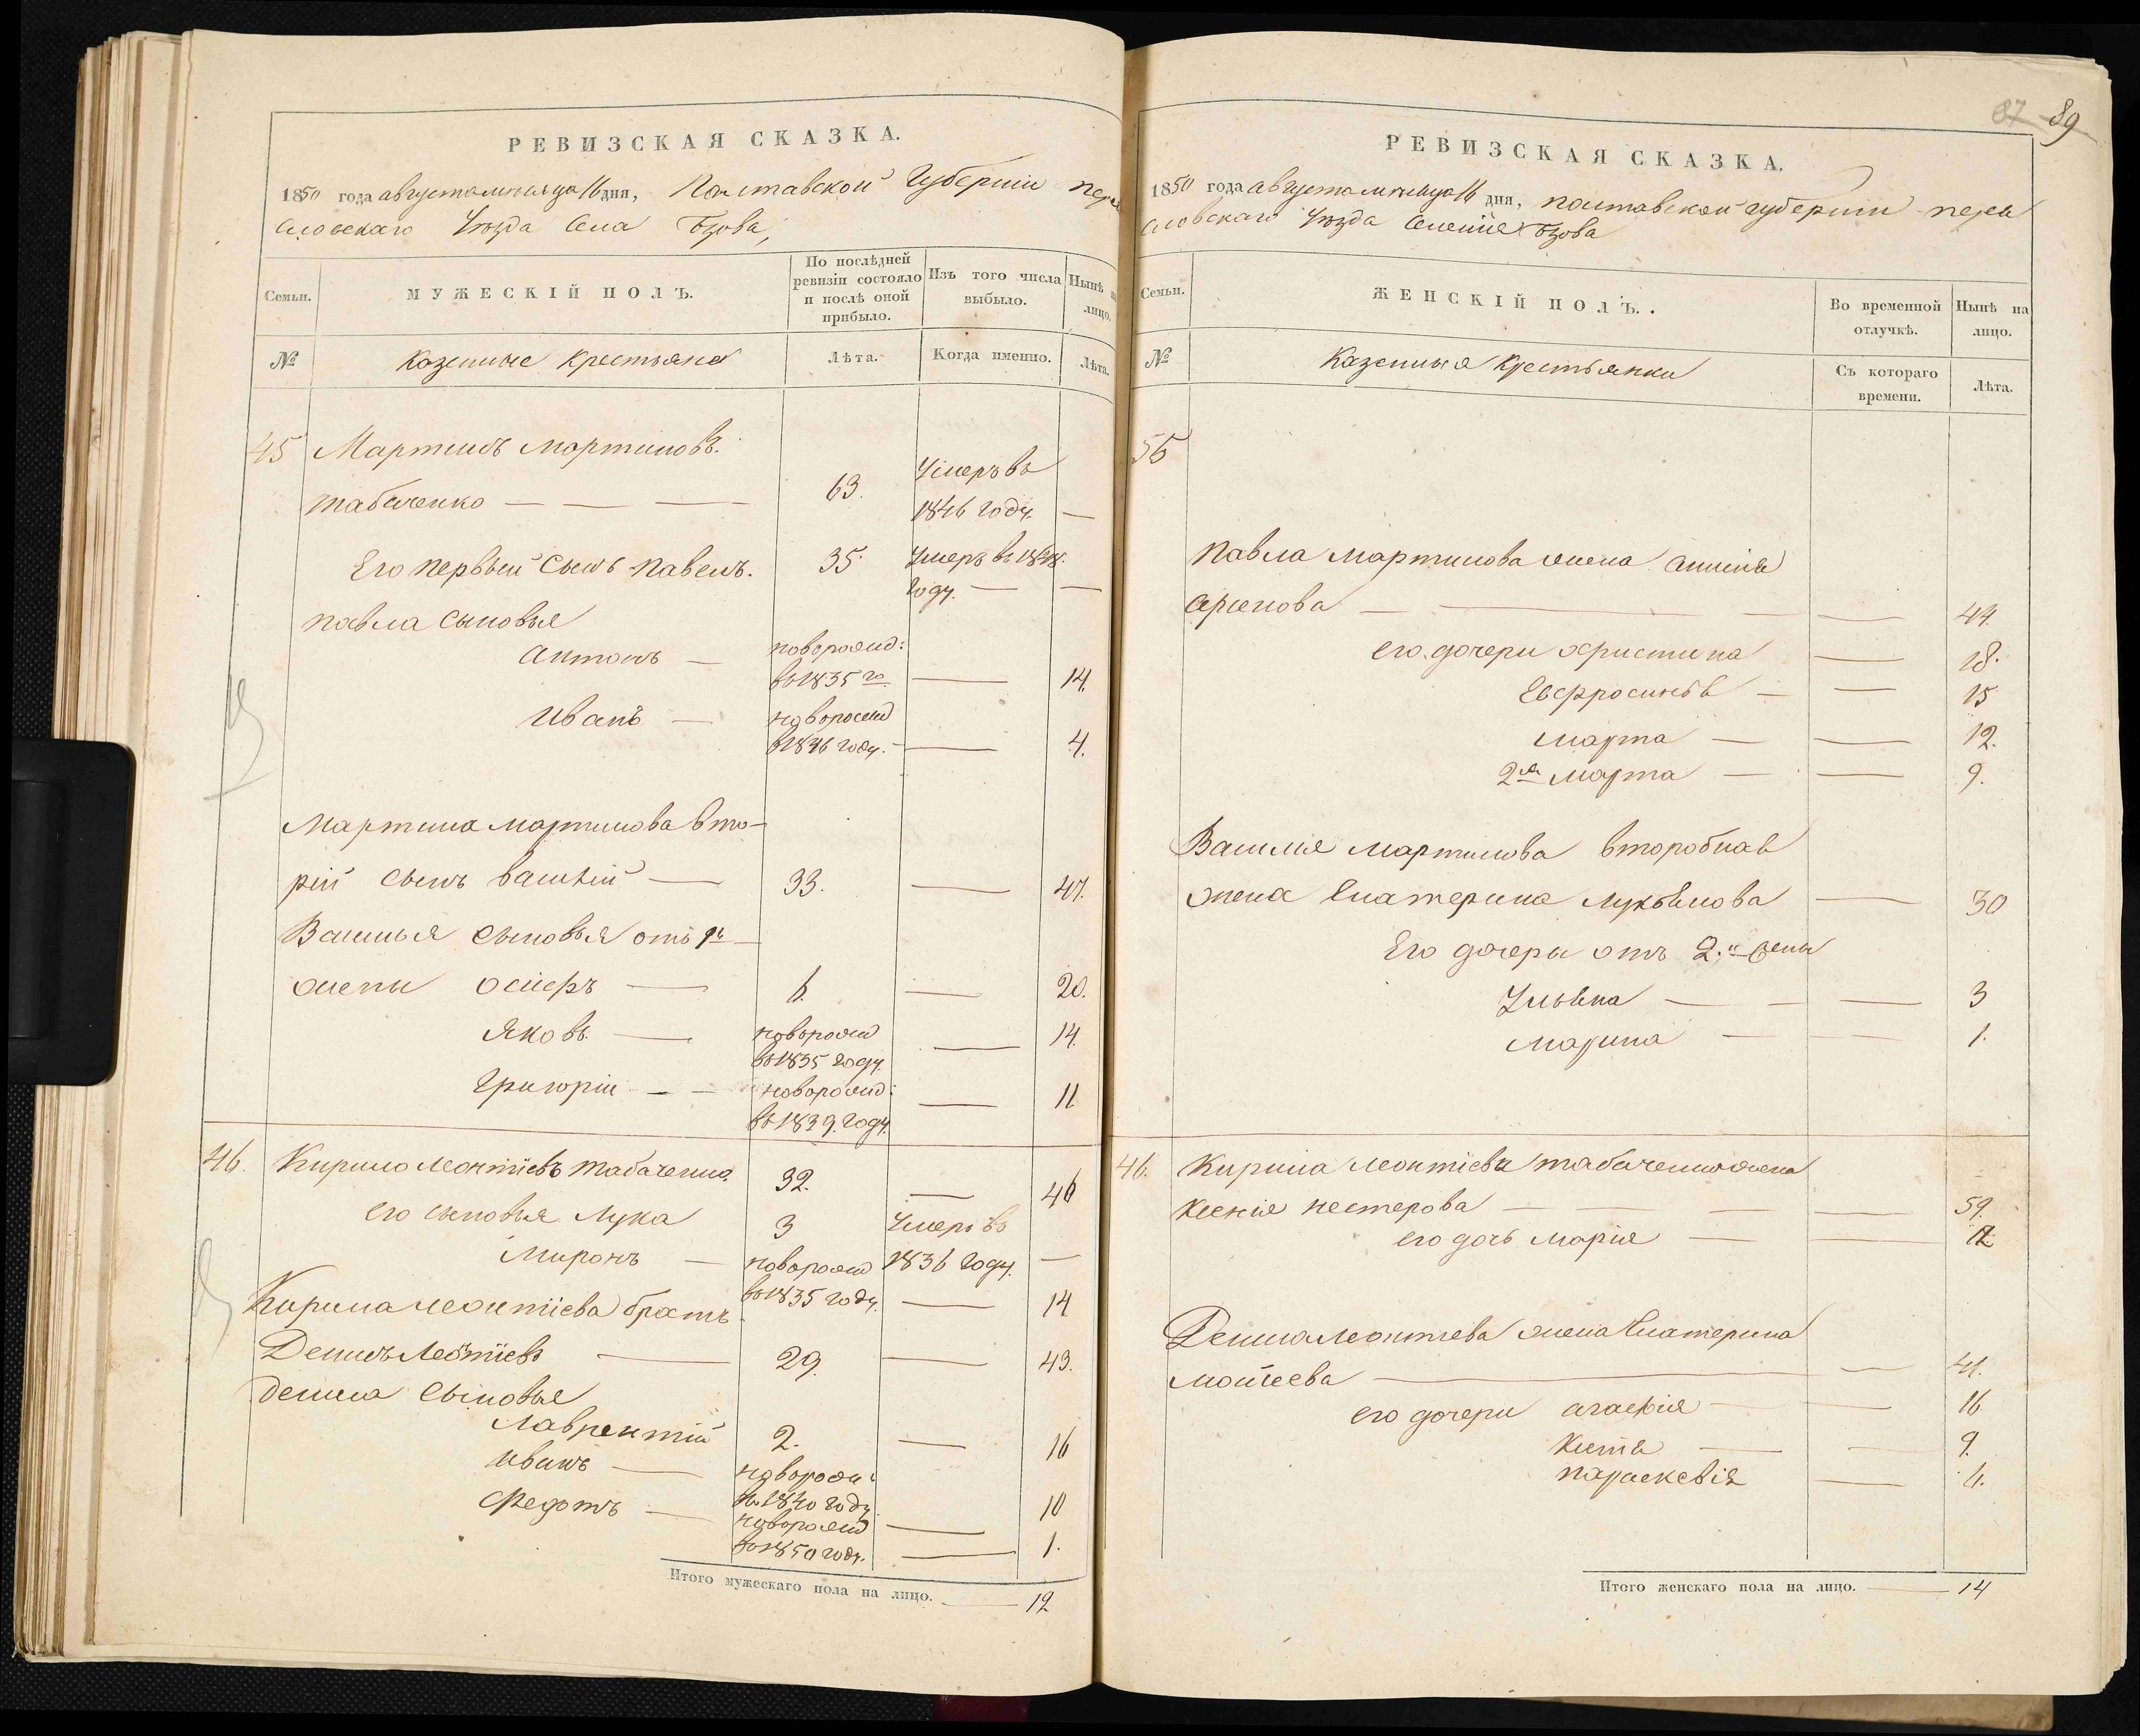 РЕВИЗСКАЯ СКАЗКА.
1850 года августа мѣсяца 16 дня, Полтавской Губерніи Перея
словскаго Уѣзда Села Бзова,
Семьи.
МУЖЕСКІЙ ПОЛЪ.
По послѣдней ревизіи состояло и послѣ оной прибыло.
Изъ того числа выбыло.
Нынѣ на лицо.
№
Казенные Крестьяне
Лѣта.
Когда именно.
Лѣта.
45 Мартинъ Мартиновъ.
Табаченко — — — 63. Умеръ въ 1846 году. —
Его первый сынъ Павелъ. 35 Умеръ въ 1848. году. — —
Павла сыновья
Антонъ — новорожд: въ 1835 го — 14.
Иванъ — новорожд в 1846 году. — 4.
Мартина Мартинова вто-
рій сынъ Василій — 33. — 47.
Василья сыновья отъ 1й —
жены Осифъ — 6. — 20.
Яковъ. — новорожд въ 1835 году. — 14.
Григорій — — новорожд: въ 1839. году. — 11
46. Кирило Леонтіевъ Табаченко. 32. — 46
Его сыновья Лука 3 Умеръ въ 1836 году. —
Миронъ — новорожд въ 1835 году. — 14
Кирила Леонтіева братъ
Денисъ Леонтіевъ — 29. — 43.
Дениса сыновья
Лаврентій 2. — 16
Иванъ — новорожд: въ 1840 году — 10
Федотъ — новорожд въ 1850 году. — 1.
Итого мужескаго пола на лицо. — 12
87 89
РЕВИЗСКАЯ СКАЗКА.
1850 года августа мѣсяца 16 дня, Полтавской Губерніи Перея
словскаго Уѣзда Селенія Бзова
Семьи.
ЖЕНСКІЙ ПОЛЪ.
Во временной отлучкѣ.
Нынѣ на лицо.
№
Казенныя Крестьянки
Съ котораго времени.
Лѣта.
Павла Мартинова жена
— — — — 44.
Его дочери Христина — 18.
Евфросинья — — 15
Марта — — 12.
2я Марта — — 9.
Василія Мартинова второбная
жена Екатерина Лукьянова — 30
Его дочери отъ 2й жены
Ульяна — — — 3
Марина — — 1.
46. Кирила Леонтіева Табаченка жена
Ксенія Нестерова — — — — 39.
Его дочь Марія — — 12
Дениса Леонтіева жена Екатерина
Моисеева — — 41.
Его дочери Агафія — — 16
— — 9.
Параскевія — 4.
Итого женскаго пола на лицо. — 14